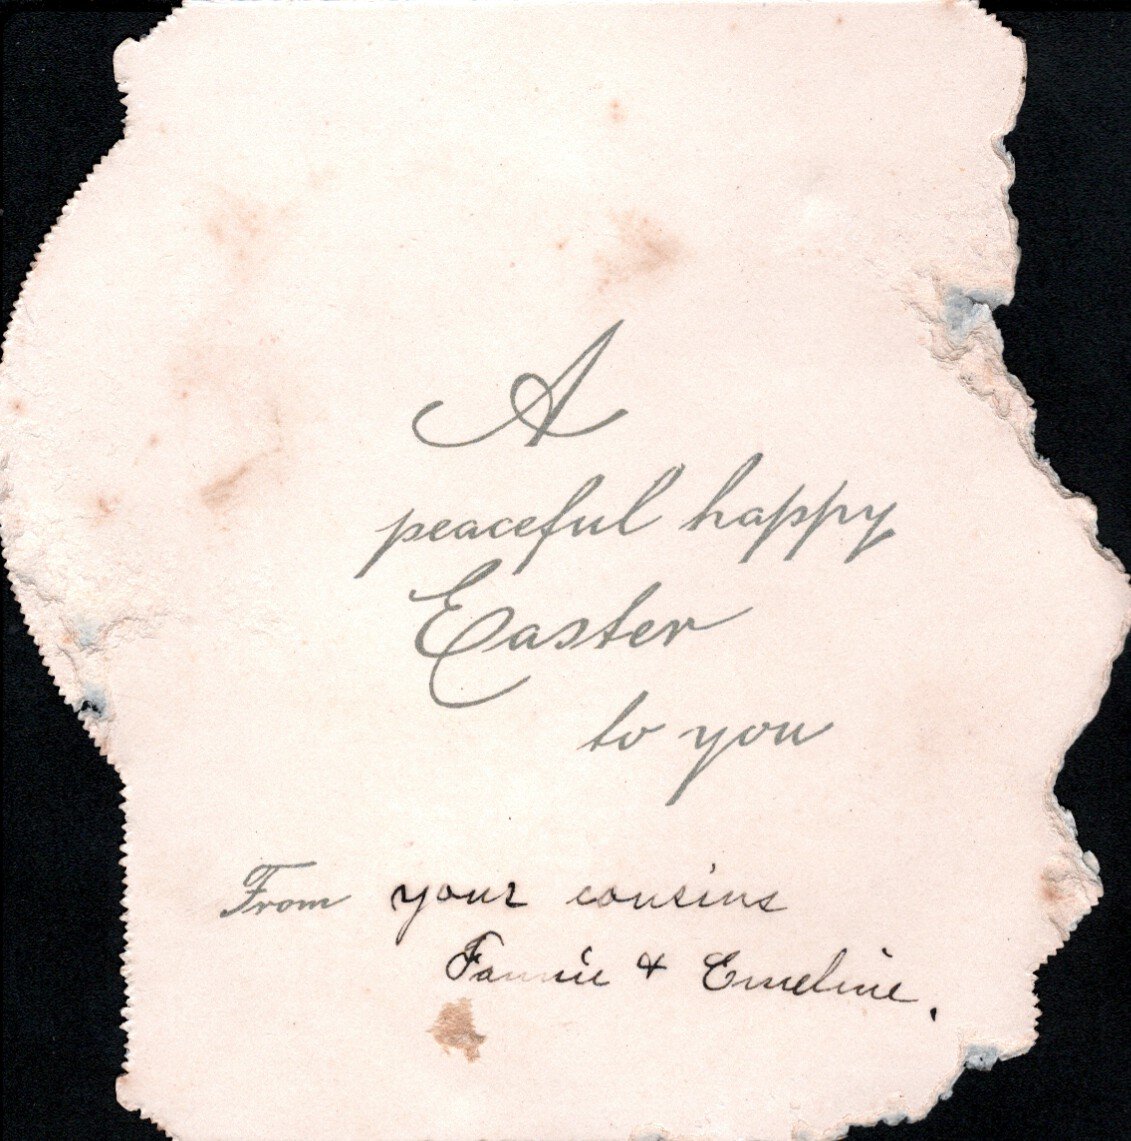 A
peaceful happy
Easter
to you
From your cousins
Fannie & Emeline.